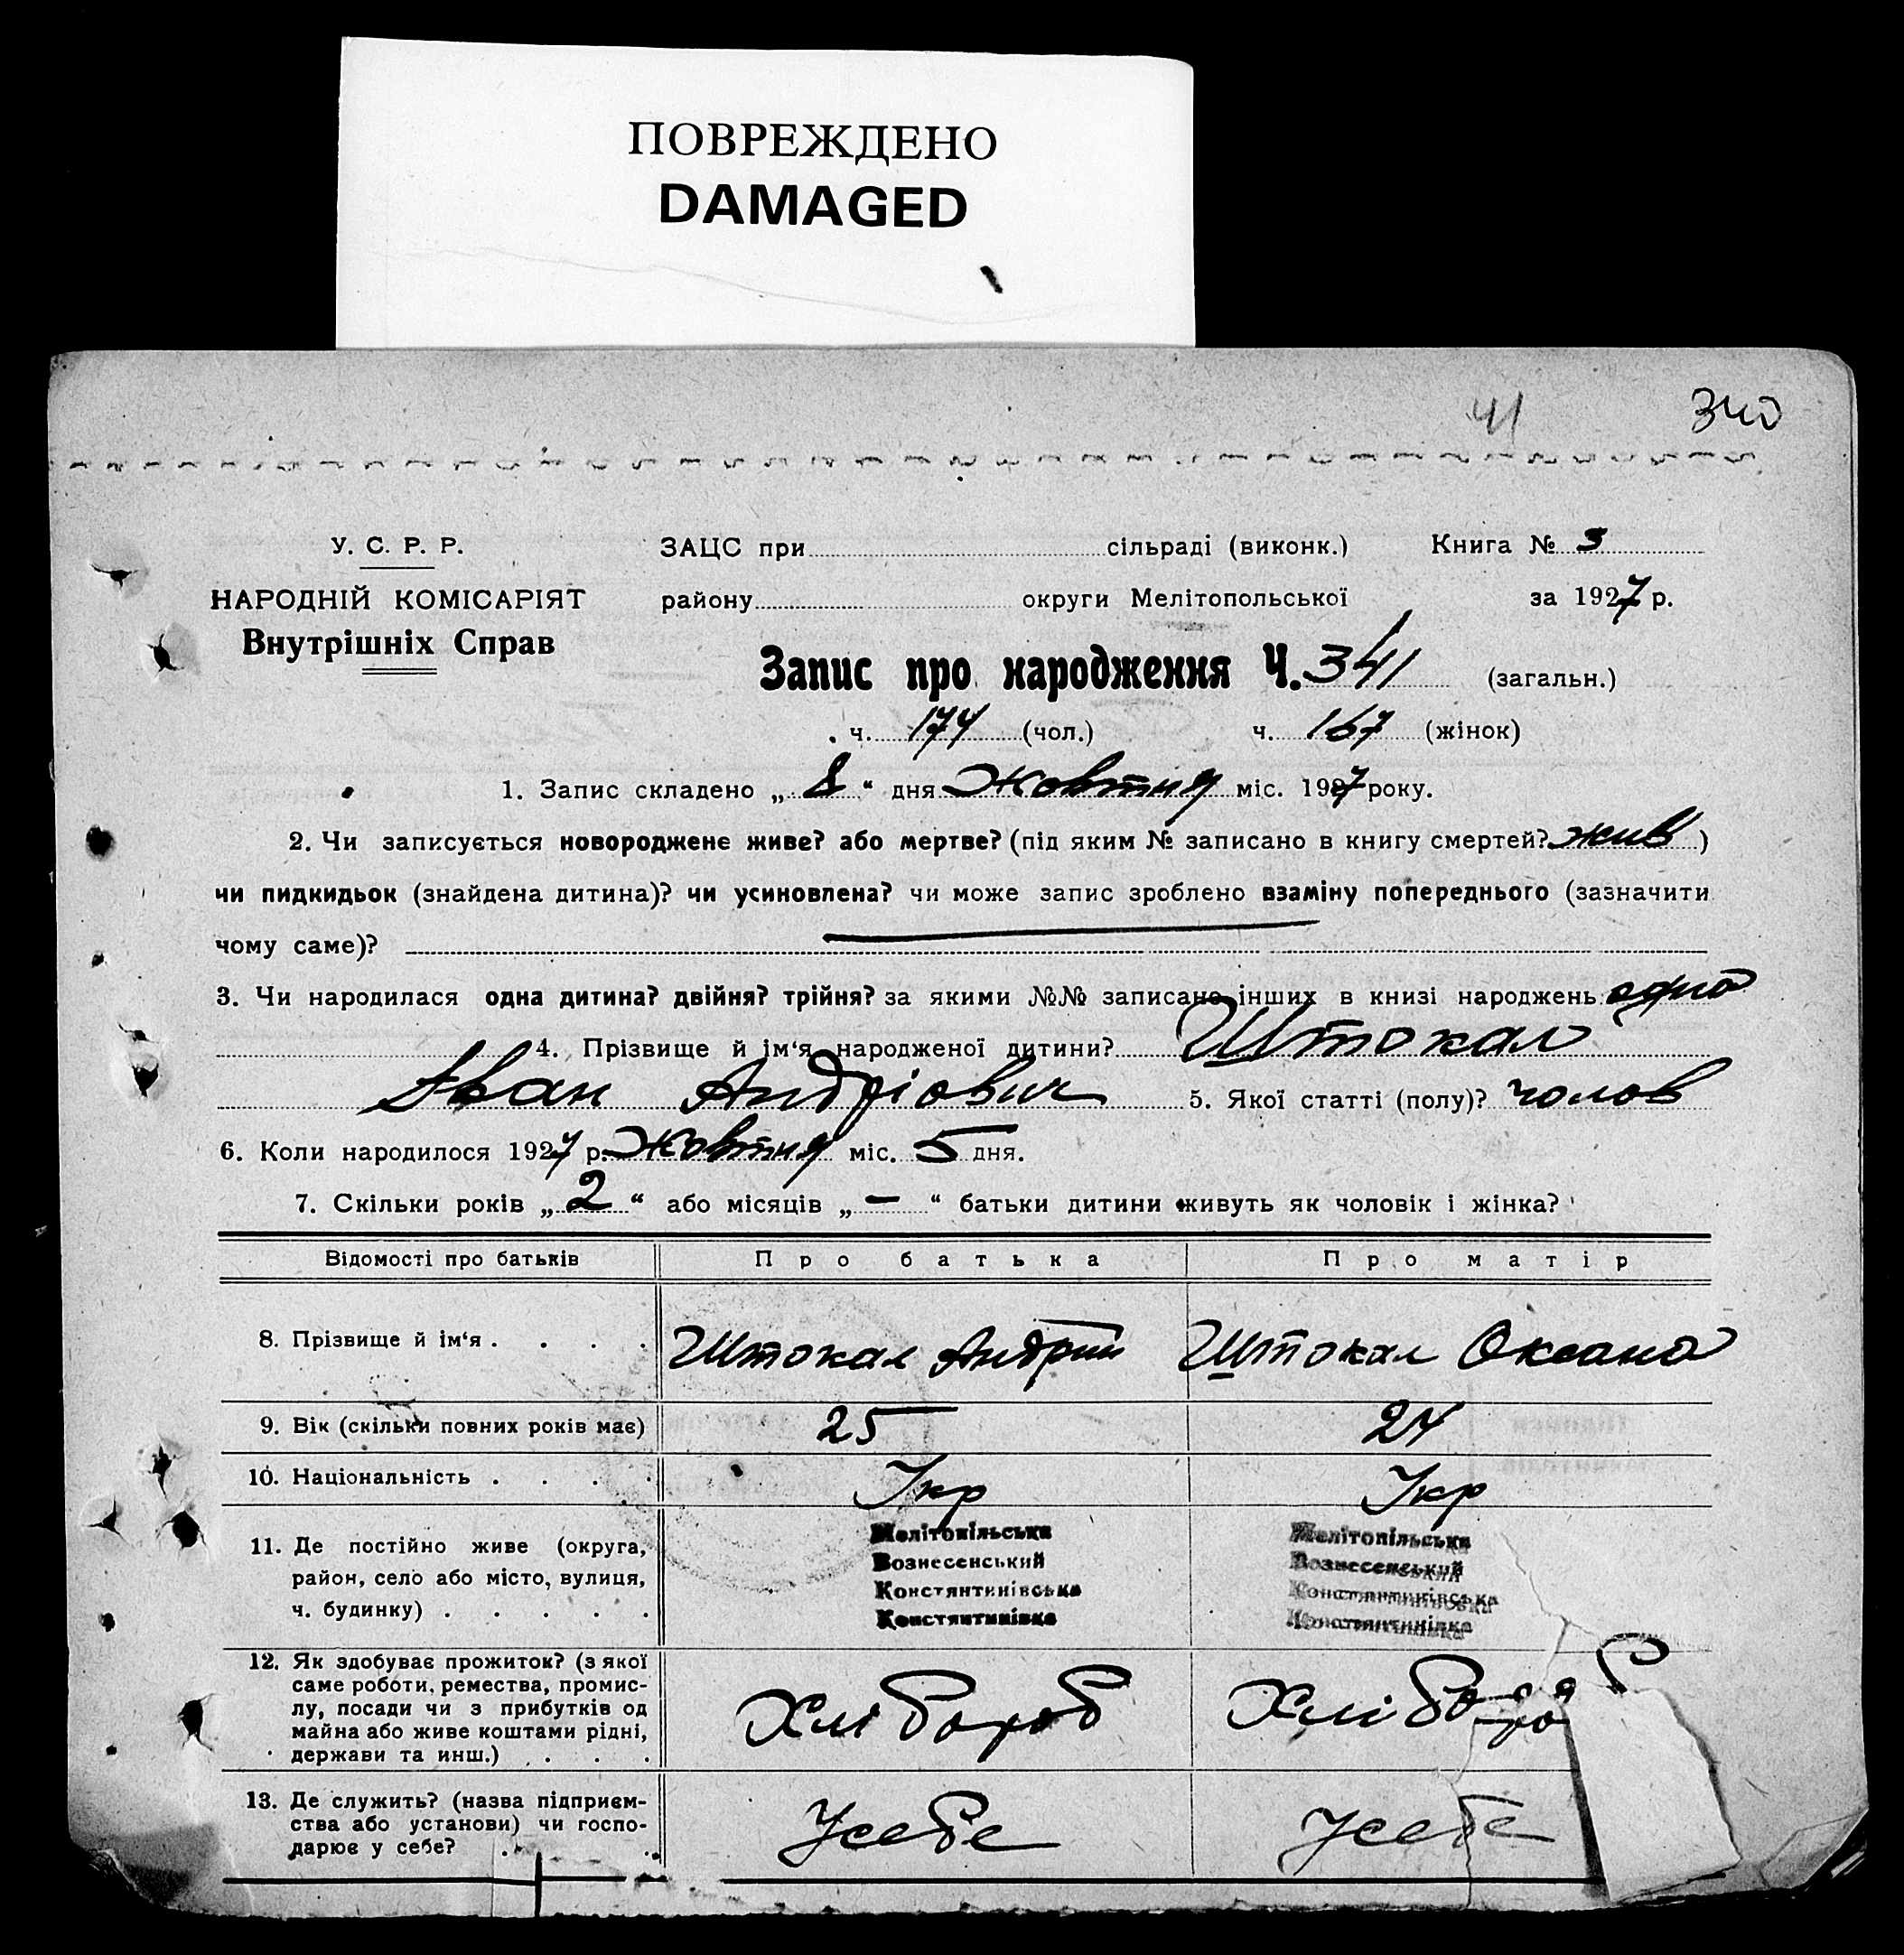 ПОВРЕЖДЕНО
DAMAGED
41 340
У. С. Р. Р. ЗАЦС при сільраді (виконк.) Книга № 3
НАРОДНІЙ КОМІСАРІЯТ району округи Мелітопольської за 1927 р.
Внутрішніх Справ
Запис про народження Ч. 341 (загальн.)
ч. 174 (чол.) ч. 167 (жінок)
1. Запис складено „ 8 “ дня Жовтня міс. 1927 року.
2. Чи записується новороджене живе? або мертве? (під яким № записано в книгу смертей? жив )
чи пидкидьок (знайдена дитина)? чи усиновлена? чи може запис зроблено взаміну попереднього (зазначити
чому саме)?
3. Чи народилася одна дитина? двійня? трійня? за якими №№ записано інших в книзі народжень одна
4. Прізвище й ім‘я народженої дитини? Штокал
Іван Андріович 5. Якої статті (полу)? чолов
6. Коли народилося 1927 р. Жовтня міс. 5 дня.
7. Скільки років „ 2 “ або місяців „ — “ батьки дитини живуть як чоловік і жінка?
Відомості про батьків Про батька Про матір
8. Прізвище й ім‘я . . . . Штокал Андрій Штокал Оксана
9. Вік (скільки повних років має) 25 24
10. Національність . . . . Укр Укр
11. Де постійно живе (округа, район, село або місто, вулиця, ч. будинку) . . . . .
Мелітопільська Мелітопільська
Вознесенський Вознесенський
Констянтинівська Констянтинівська
Констянтинівка Констянтинівка
12. Як здобуває прожиток? (з якої
саме роботи, ремества, промис-
лу, посади чи з прибутків од
майна або живе коштами рідні,
держави та инш.) . . . .
Хлібороб Хлібороб
13. Де служить? (назва підприєм-
ства або установи) чи госпо-
дарює у себе? . .
Усебе Усебе